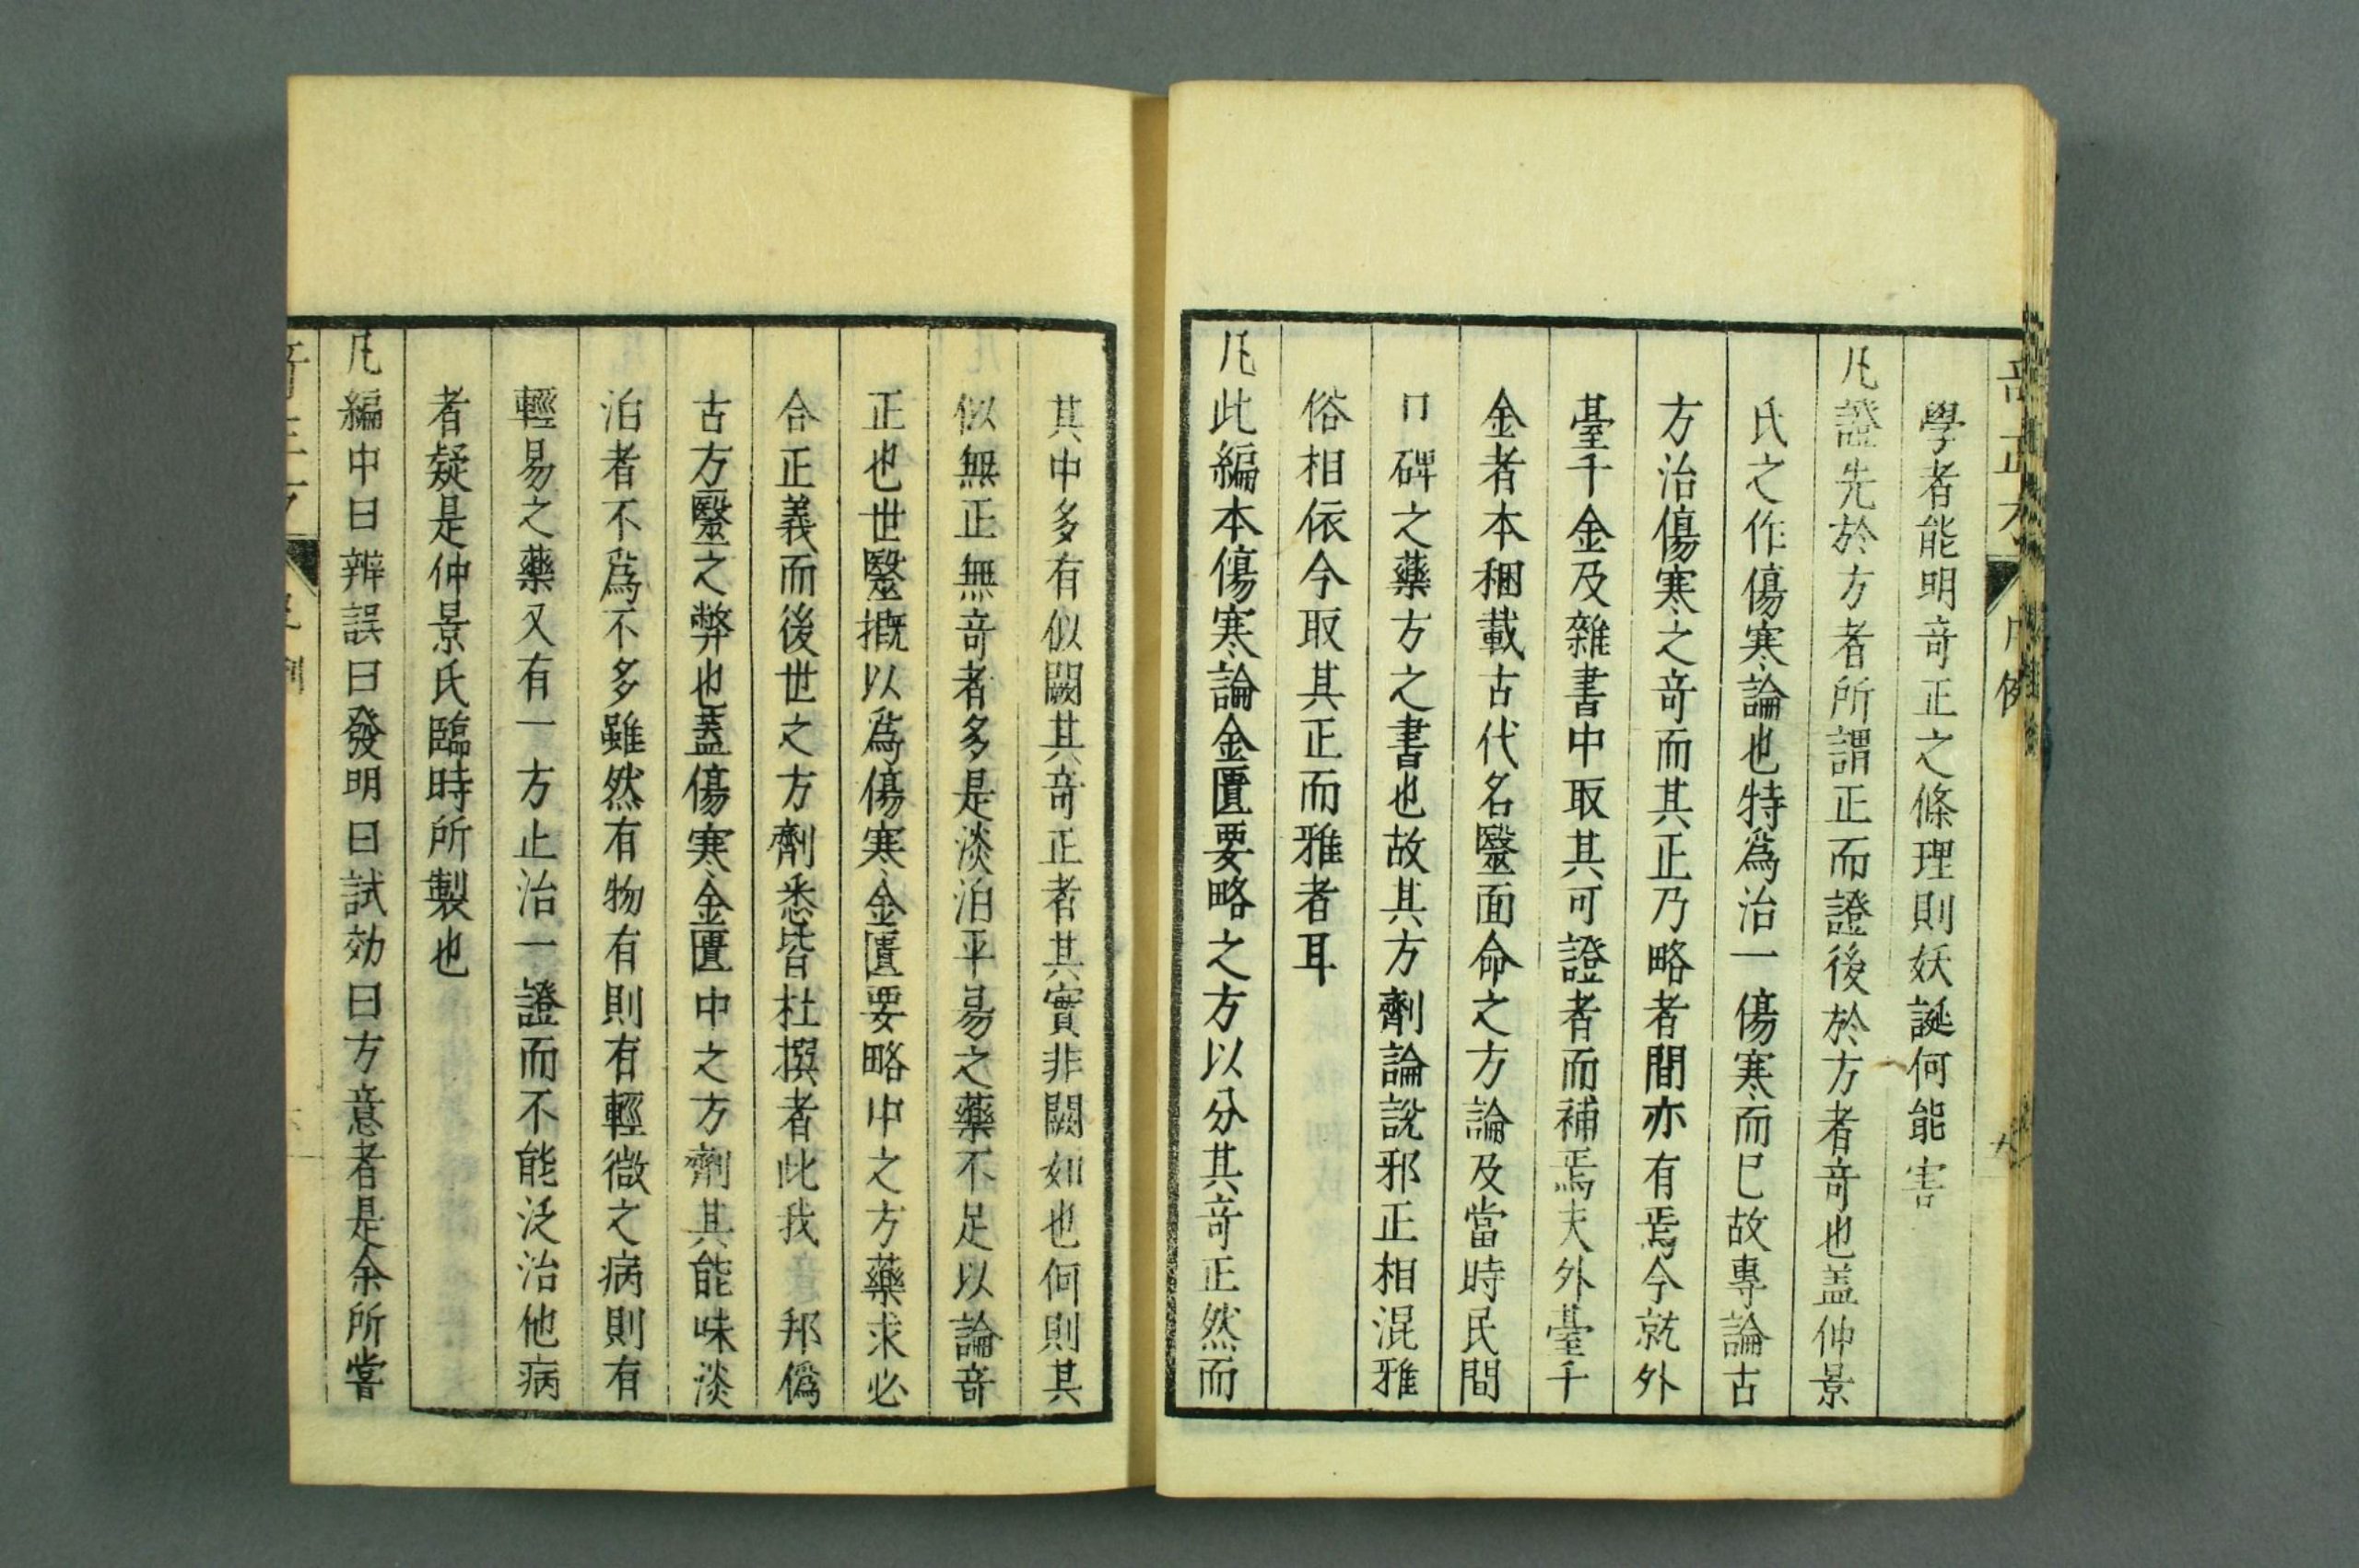 學者能明竒正之條理則妖誕何能害
凡證先於方者所謂正而證後於方者竒也盖仲景
氏之作傷寒論也特爲治一傷寒而已故專論古
方治傷寒之竒而其正乃略者間亦有焉今就外
臺千金及雜書中取其可證者而補焉夫外臺千
金者本稇載古代名毉面命之方論及當時民間
口碑之藥方之書也故其方劑論說邪正相混雅
俗相依今取其正而雅者耳
凡此編本傷寒論金匱要略之方以分其竒正然而
其中多有似闕其竒正者其實非闕如也何則其
似無正無竒者多是淡泊平易之藥不足以論竒
正也世毉摡以爲傷寒金匱要略中之方藥求必
合正義而後世之方劑悉皆杜撰者此我 邦僞
古方毉之弊也蓋傷寒金匱中之方劑其能味淡
泊者不爲不多雖然有物有則有輕微之病則有
輕易之藥又有一方止治一證而不能泛治他病
者疑是仲景氏臨時所製也
凡編中曰辨誤曰發明曰試効曰方意者是余所嘗